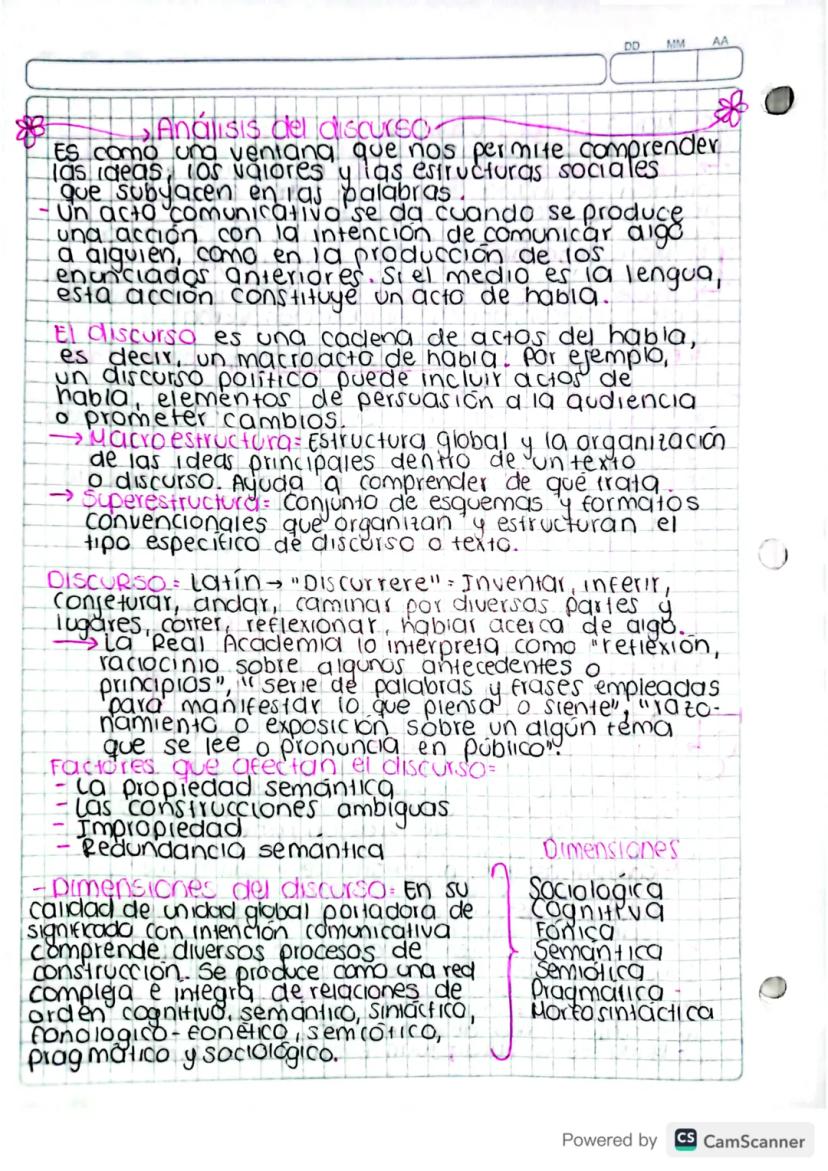 DD MM AA
Análisis del discurso
Es como una ventana que nos permite comprender
las ideas, los valores y las estructuras sociales
que subyacen en las palabras.
- Un acto comunicativo se da cuando se produce
una acción con la intención de comunicar algo
a alguien, como en la producción de los
enunciados anteriores. Si el medio es la lengua,
esta acción constituye un acto de habla.
El discurso es una cadena de actos del habla,
es decir, un macroacto de habla. Por ejemplo,
un discurso político puede incluir actos de
habla, elementos de persuasión a la audiencia
o prometer cambios.
→ Macroestructura= Estructura global y la organización
de las ideas principales dentro de un texto
o discurso. Ayuda a comprender de qué trata.
→ Superestructura= Conjunto de esquemas y formatos
convencionales que organizan y estructuran el
tipo específico de discurso o texto.
DISCURSO= Latín → "Discurrere" = Inventar, inferir,
conjeturar, andar, caminar por diversas partes y
lugares, correr, reflexionar, hablar acerca de algo.
→ La Real Academia lo interpreta como "reflexión,
raciocinio sobre algunos antecedentes o
principios", "serie de palabras y frases empleadas
para manifestar lo que piensa o siente", "razo-
namiento o exposición sobre un algún tema
que se lee o pronuncia en público".
Factores que afectan el discurso=
- La propiedad semántica
- Las construcciones ambiguas
- Impropiedad
- Redundancia semántica
- Dimensiones del discurso= En su
calidad de unidad global portadora de
significado con intención comunicativa
comprende diversos procesos de
construcción. Se produce como una red
compleja e integra de relaciones de
orden cognitivo, semántico, sintáctico,
fonologico-fonético, semiótico,
pragmático y sociológico.
Dimensiones
Sociologica
Cognitiva
Fónica
Semántica
Semiótica
Pragmatica
Morfosintáctica
Powered by CS CamScanner